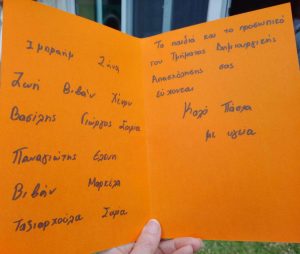 Ιμπραήμ Ζήνα
Ζωή Βιβιάν
Βασίλης Γιώργος Σοφία
Παναγιώτης Ελένη
Βιβιάν Μαρκέλα
Ταξιαρχούλα Σοφία
Τα παιδιά και το προσωπικό
του Τμήματος Δημιουργικής
Απασχόλησης σας
εύχονται
Καλό Πάσχα
με υγεία